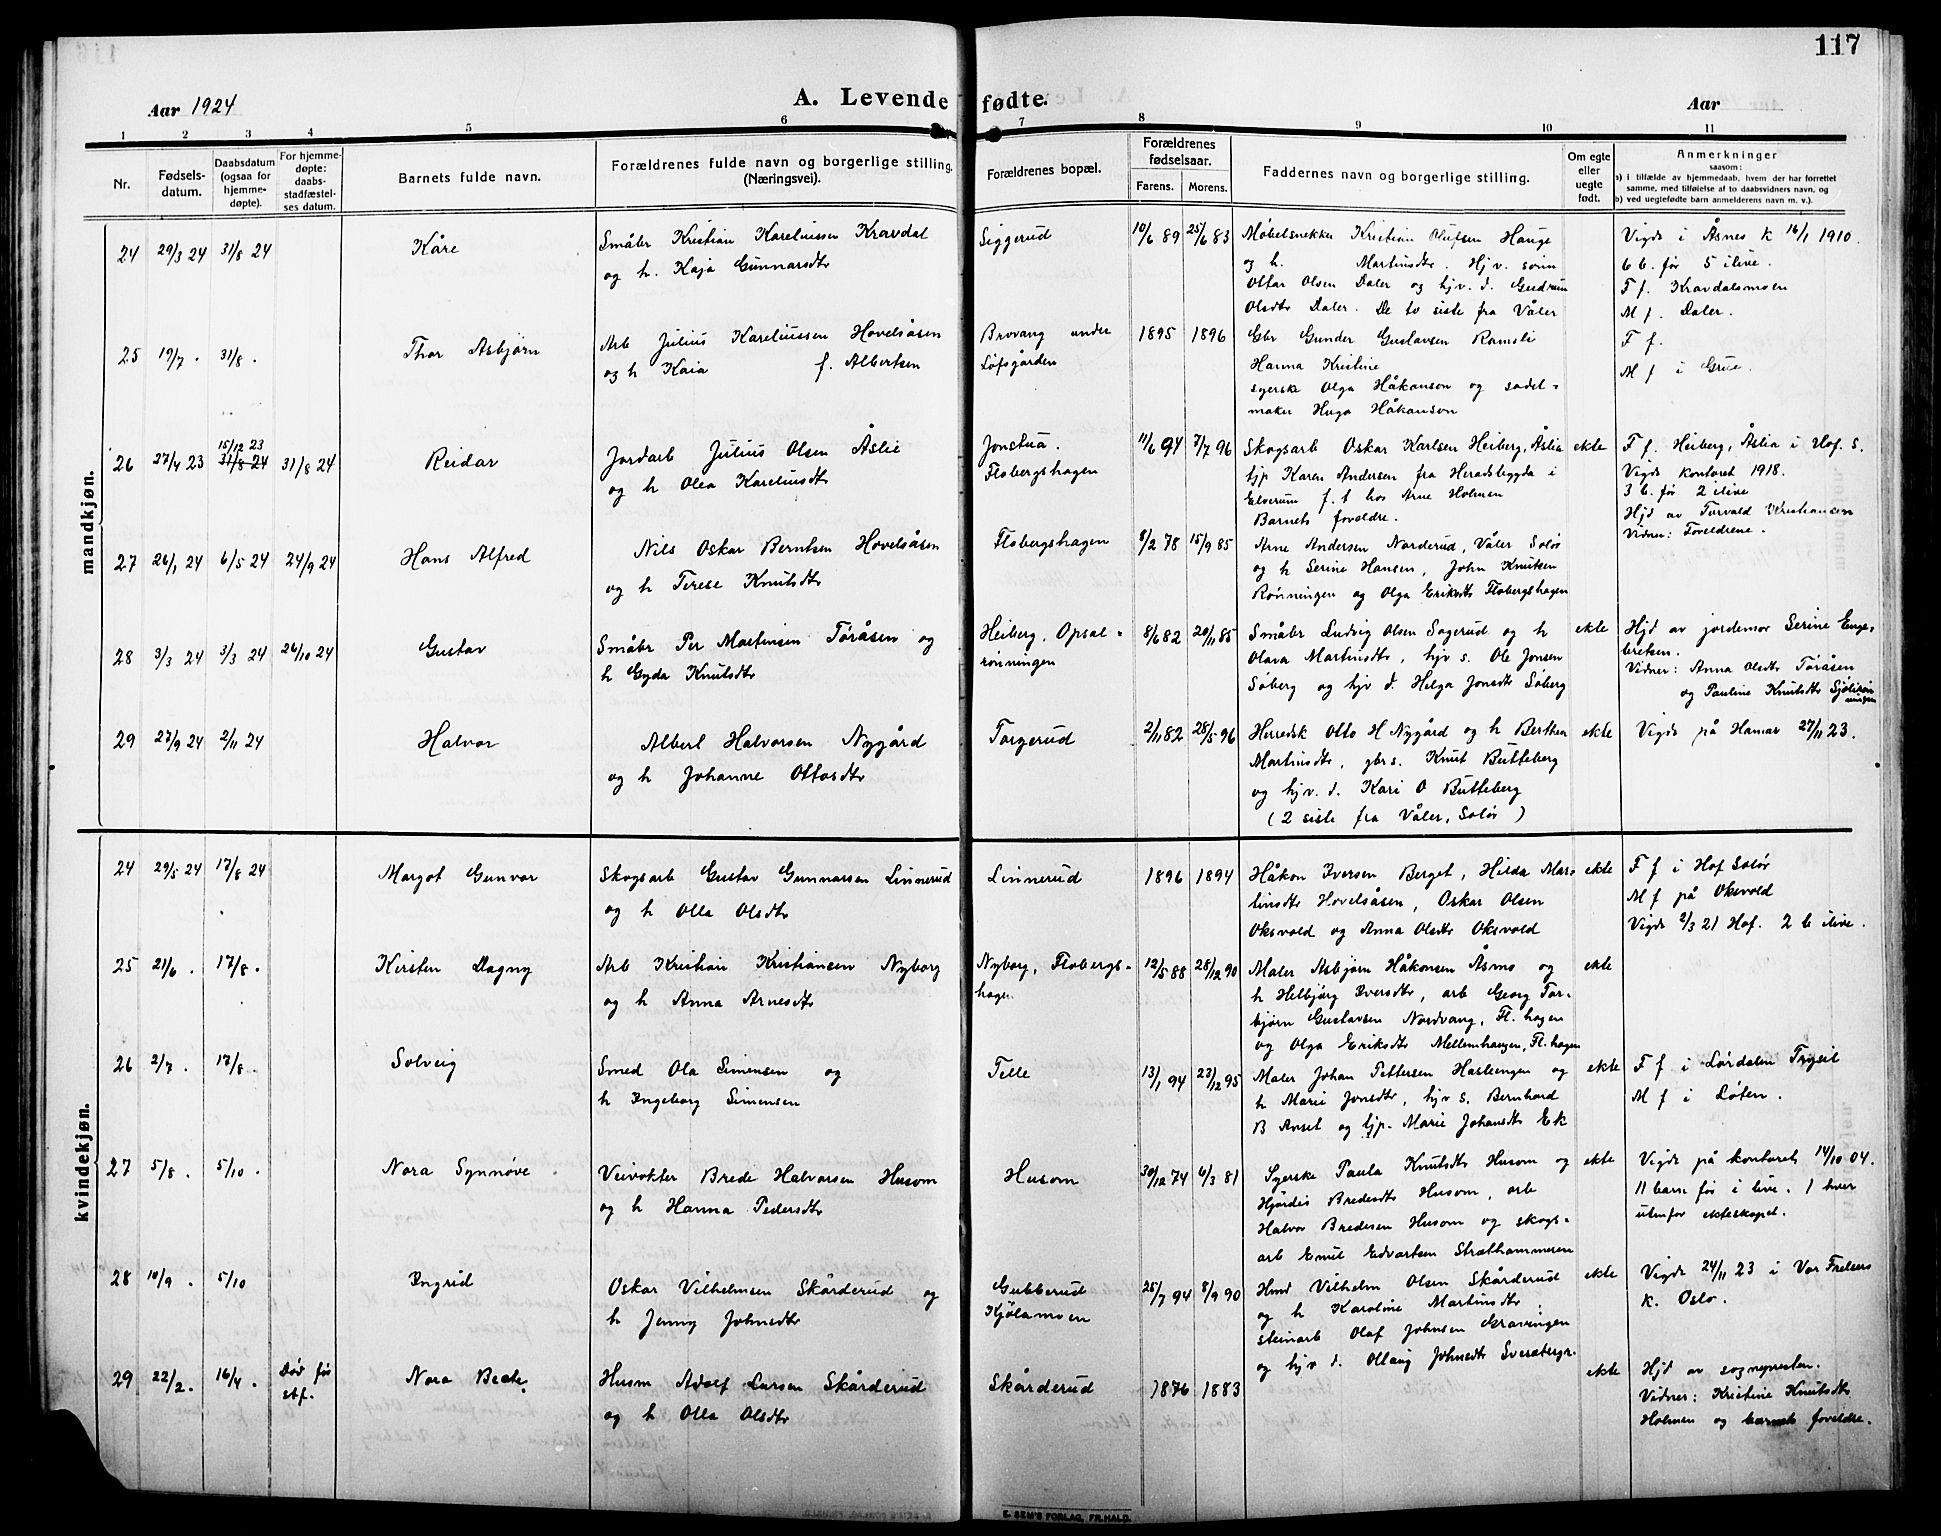 117
Aar 1924
A. Levende fødte.
Aar
1 2 3 4 5 6 7 8 9 10 11
Nr.
Fødsels-
datum.
Daabsdatum
(ogsaa for
hjemme-
døpte).
For hjemme-
døpte:
daabs-
stadfæstel-
ses datum.
Barnets fulde navn.
Forældrenes fulde navn og borgerlige stilling.
(Næringsvei).
Forældrenes bopæl.
Forældrenes
fødselsaar.
Farens. Morens.
Faddernes navn og borgerlige stilling.
Om egte
eller
uegte
født.
Anmerkninger
saasom:
a) i tilfælde av hjemmedaab, hvem der har forrettet
samme, med tilføielse af to daabsvidners navn, og
b) ved uegtefødte barn anmelderens navn m. v.).
mandkjøn.
24 29/3 24 31/8 24
Kåre
Småbr Kristian Kareliussen Kravdal
og h. Kaja Gunnarsdtr
Siggerud
10/6 89 25/6 83
Møbelsnekker Kristian Olufsen Hauge
og h. Martinsdtr. Hjv. sønn
Ottar Olsen Daler og hjv. d. Gudrun
Olsdtr Daler. De to siste fra Våler
Vigde i Åsnes k 16/1 1910.
6 b. før 5 ilive.
F f. Kravdalsmoen
M f. Daler.
25 19/7. 31/8.
Thor Asbjørn
Arb Julius Kareliussen Hovelsåsen
og h Kaia f. Albertsen
Brovang under
Løfsgården
1895 1896
Gbr Gunder Gustavsen Ramsli
Hanna Kristine
syerske Olga Håkanson og sadel-
maker Hugo Håkanson
F f.
M f i Grue.
26 27/4 23 15/12 23 31/8 24 31/8 24
Reidar
Jordarb Julius Olsen Åslie
og h Olea Kareliusdtr
Jonstua.
Flobergshagen
11/6 94 7/7 96
Skogsarb Oskar Karlsen Heiberg, Åslia
tjp Karen Andersen fra Heradsbygda i
Elverum f. t hos Arne Holmen
Barnets foreldre.
ekte
F f. Heiberg, Åslia i Hof. S.
Vigde kontoret 1918.
3 b. før 2 ilive
Hjd av Torvald Kristiansen
Vidner: Foreldrene.
27 26/1 24 6/5 24 24/9 24
Hans Alfred
Nils Oskar Berntsen Hovelsåsen
og h Terese Knutsdtr
Flobergshagen
8/2 78 15/9 85
Arne Andersen Norderud, Våler Solør
og h Serine Hansen, John Knutsen
Rønningen og Olga Eriksdtr Flobergshagen
28 3/3 24 3/3 24 26/10 24
Gustav
Småbr Per Martinsen Töråsen og
h Gyda Knutsdtr
Heiberg, Opsal-
rønningen
8/6 82 20/11 85
Småbr Ludvig Olsen Sagerud og h
Olava Martinsdtr, hjv s. Ole Jonsen
Søberg og hjv d. Helga Jonsdtr Søberg
ekte
Hjd av jordemor Serine Enge-
bretsen.
Vidner: Anna Olsdtr Töråsen
og Pauline Knutsdtr
29 27/9 24 2/11 24
Halvor
Albert Halvorsen Nygård
og h Johanne Ottosdtr
Torgerud
2/11 82 28/5 96
Herredsk Otto H Nygård og h Berthea
Martinsdtr, gbr s. Knut Butteberg
og hjv. d. Kari O Butteberg
(2 siste fra Våler, Solør)
ekte
Vigde på Hamar 27/11 23.
kvindekjøn.
24 29/5 24 17/8 24
Margot Gunvor
Skogsarb Gustav Gunnarsen Linnerud
og h Olla Olsdtr
Linnerud
1896 1894
Håkon Iversen Berget, Hilda Mar-
tinsdtr Hovelsåsen, Oskar Olsen
Oksvold og Anna Olsdtr Oksvold
ekte
F f i Hof Solør
M f på Oksvold
Vigde 2/3 21 Hof. 2 b ilive.
25 21/6. 17/8.
Kirsten Dagny
Arb Kristian Kristiansen Nyborg
og h Anna Arnesdtr
Nyborg, Flobergs-
hagen
12/5 88 28/12 90
Maler Asbjørn Håkonsen Åsmo og
h Helbjørg Iversdtr, arb Georg Tor-
bjørn Gustavsen Nordvang, Fl. hagen
og Olga Eriksdtr Mellemhaugen, Fl. hagen
ekte
26 2/7. 17/8.
Solveig
Smed Ola Simensen og
h Ingeborg Simensen
Telle
13/1 94 23/12 95
Maler Johan Pettersen Hasliengen og
h Marie Jonsdtr, hjv s. Bernhard
B Anset og tjp. Marie Johansdtr Ek
ekte
F f i Lørdalen Trysil
M f i Løten.
27 5/8. 5/10.
Nora Synnøve
Veivokter Brede Halvorsen Husom
og h Hanna Pedersdtr
Husom
30/12 74 6/3 81
Syerske Paula Knutsdtr Husom og
Hjørdis Bredesdtr Husom, arb
Halvor Bredesen Husom og skogs-
arb Emil Edvartsen Stræthammeren
ekte
Vigde på kontoret 14/10 04.
11 barn før i live. 1 hver
utenfor ekteskapet.
28 10/9. 5/10
Ingrid
Oskar Vilhelmsen Skårderud og
h Jenny Johnsdtr
Gubberud
Kjølamoen
25/7 94 8/9 90
Hmd Vilhelm Olsen Skårderud
og h Karoline Martinsdtr;
steinarb Olaf Johnsen Gravingen
og hjv d. Ollaug Johnsdtr
ekte
Vigde 24/11 23 i Vor Frelsers
k. Oslo.
29 22/2. 16/4. Død før
stf.
Nora Beate
Husm Adolf Larsen Skårderud
og h Olla Olsdtr
Skårderud
1876 1883
ekte
Hjd av sogneprésten.
Vidner: Kristine Knutsdtr
Holmen og barnets foreldre.
E. SEM'S FORLAG, FR.HALD.